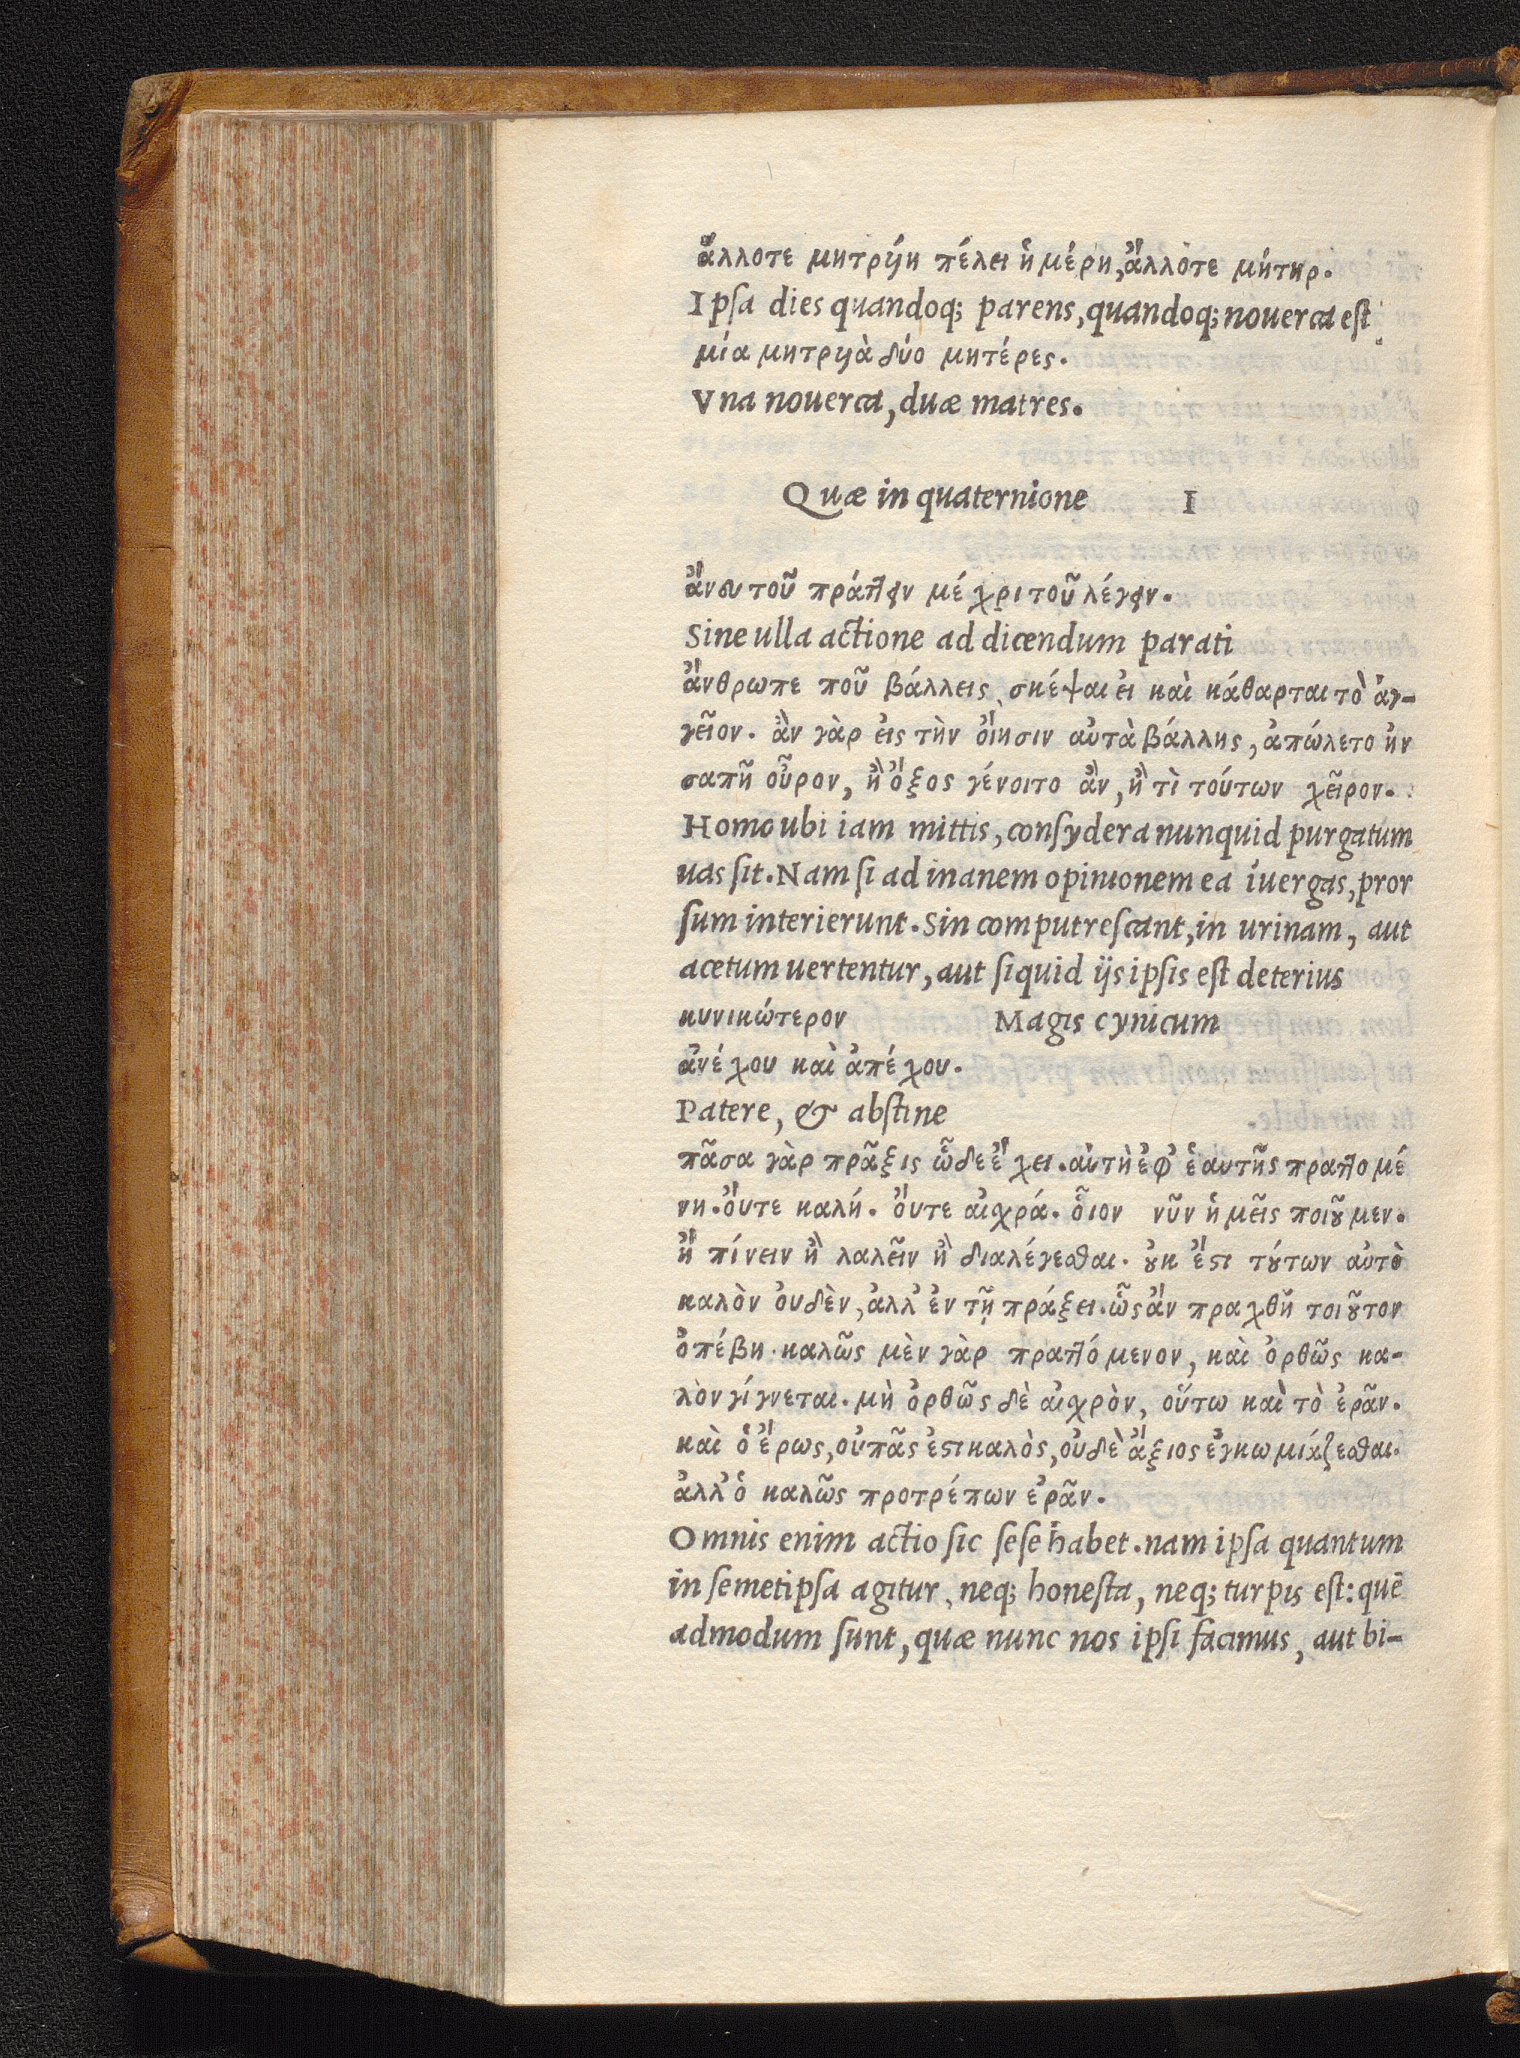 ἄλλοτε μητρυιὴ πέλει ἡμέρη, ἄλλοτε μήτηρ.
Ipsa dies quandoq; parens, quandoq; nouerca est
μία μητρυιὰ δύο μητέρες.
Vna nouerca, duæ matres.
Quæ in quaternione I
ἄνευ τοῦ πράττειν μέχρι τοῦ λέγειν.
Sine ulla actione ad dicendum parati
ἄνθρωπε ποῦ βάλλεις, σκέψαι εἰ καὶ κάθαρται τὸ ἀγ-
γεῖον. ἂν γὰρ εἰς τὴν ὄιησιν αὐτὰ βάλλης, ἀπώλετο ἢν
σαπῆ οὖρον, ἢ ὄξος γένοιτο ἂν, ἢ τὶ τούτων χεῖρον.
Homo ubi iam mittis, consydera nunquid purgatum
uas sit. Nam si ad inanem opinionem ea iuergas, pror
sum interierunt. Sin computrescant, in urinam, aut
acetum uertentur, aut siquid ijs ipsis est deterius
κυνικώτερον Magis cynicum
ἀνέχου καὶ ἀπέχου.
Patere, & abstine
πᾶσα γὰρ πρᾶξις ὧδε ἔχει. αὐτὴ ἐφ' ἑαυτῆς πραττομέ
νη. ὄυτε καλή. ὄυτε αἰχρά. οἷον νῦν ἡμεῖς ποιοῦμεν.
ἢ πίνειν ἢ λαλεῖν ἢ διαλέγεσθαι. οὐκ ἔστι τούτων αὐτὸ
καλὸν ὀυδὲν, ἀλλ' ἐν τῇ πράξει. ὧς ἂν πραχθῆ τοιοῦτον
ὀπέβη. καλῶς μὲν γὰρ πραττόμενον, καὶ ὀρθῶς κα-
λὸν γίγνεται. μὴ ὀρθῶς δὲ αἰχρὸν, οὕτω καὶ τὸ ἐρᾶν.
καὶ ὁ ἔρως, οὐ πᾶς ἐστι καλὸς, οὐδὲ ἄξιος ἐγκωμιάζεσθαι.
ἀλλ' ὁ καλῶς προτρέπων ἐρᾶν.
Omnis enim actio sic sese habet. nam ipsa quantum
in semetipsa agitur, neq; honesta, neq; turpis est: quē
admodum sunt, quæ nunc nos ipsi facimus, aut bi-